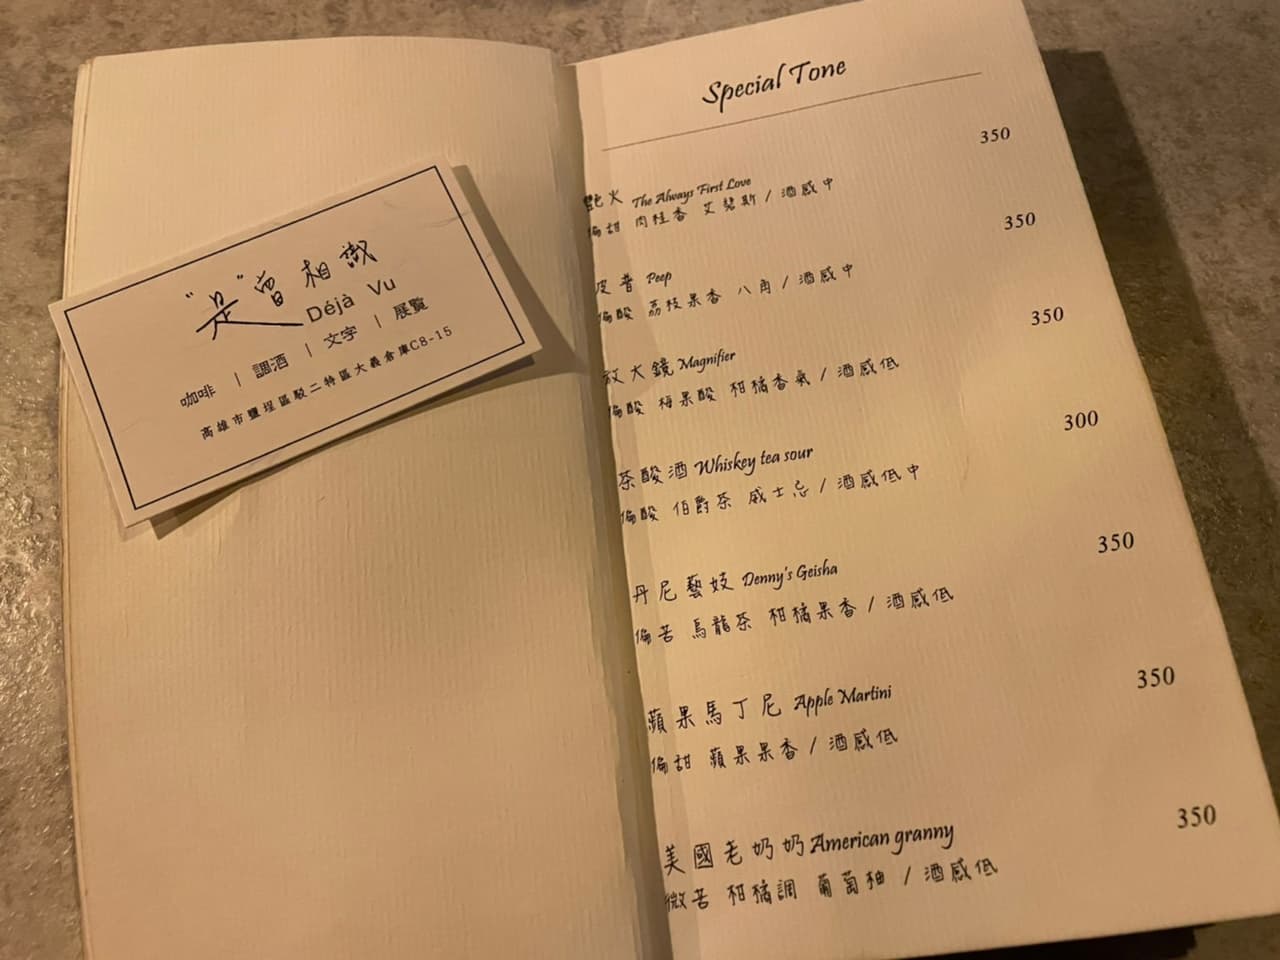 "是"曾相識
Déjà Vu
咖啡 | 調酒 | 文字 | 展覽
高雄市鹽埕區駁二特區大義倉庫C8-15
Special Tone
350
艷火 The Always First Love
偏甜 肉桂香 艾碧斯 / 酒感中
350
皮普 Peep
偏酸 荔枝果香 八角 / 酒感中
350
放大鏡 Magnifier
偏酸 梅果酸 柑橘香氣 / 酒感低
300
茶酸酒 Whiskey tea sour
偏酸 伯爵茶 威士忌 / 酒感低中
350
丹尼藝妓 Denny's Geisha
偏苦 烏龍茶 柑橘果香 / 酒感低
350
蘋果馬丁尼 Apple Martini
偏甜 蘋果果香 / 酒感低
350
美國老奶奶 American granny
微苦 柑橘調 葡萄柚 / 酒感低